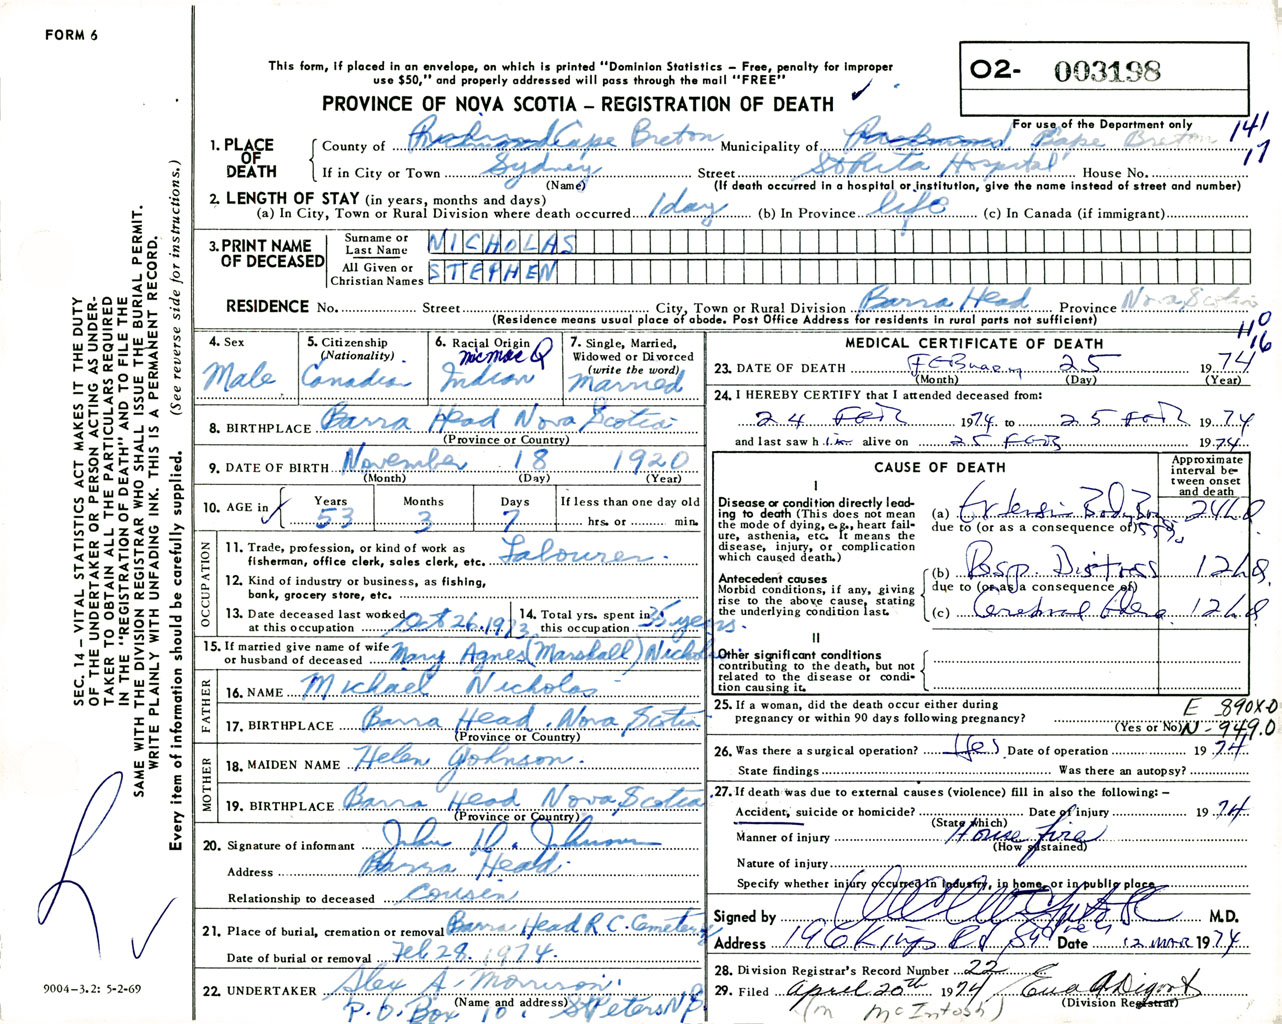 FORM 6
This form, if placed in an envelope, on which is printed "Dominion Statistics – Free, penalty for improper
use $50," and properly addressed will pass through the mail "FREE"
PROVINCE OF NOVA SCOTIA – REGISTRATION OF DEATH
O2- 003198
For use of the Department only
141
17
1. PLACE OF DEATH
County of Richmond Cape Breton Municipality of Richmond Cape Breton
If in City or Town Sydney Street St Rita Hospital House No.
(Name) (If death occurred in a hospital or institution, give the name instead of street and number)
2. LENGTH OF STAY (in years, months and days)
(a) In City, Town or Rural Division where death occurred 1 day (b) In Province life (c) In Canada (if immigrant)
3. PRINT NAME OF DECEASED
Surname or Last Name NICHOLAS
All Given or Christian Names STEPHEN
RESIDENCE No. Street City, Town or Rural Division Barra Head Province Nova Scotia
(Residence means usual place of abode. Post Office Address for residents in rural parts not sufficient)
4. Sex Male
5. Citizenship (Nationality) Canadian
6. Racial Origin micmac Indian
7. Single, Married, Widowed or Divorced (write the word) Married
8. BIRTHPLACE Barra Head Nova Scotia
(Province or Country)
9. DATE OF BIRTH November 18 1920
(Month) (Day) (Year)
10. AGE in Years 53 Months 3 Days 7 If less than one day old hrs. or min.
OCCUPATION
11. Trade, profession, or kind of work as fisherman, office clerk, sales clerk, etc. Labourer
12. Kind of industry or business, as fishing, bank, grocery store, etc.
13. Date deceased last worked at this occupation Oct 26, 1973
14. Total yrs. spent in this occupation 35 years.
15. If married give name of wife or husband of deceased Mary Agnes (Marshall)
FATHER
16. NAME Michael Nicholas
17. BIRTHPLACE Barra Head, Nova Scotia
(Province or Country)
MOTHER
18. MAIDEN NAME Helen Johnson.
19. BIRTHPLACE Barra Head Nova Scotia
(Province or Country)
20. Signature of informant John Johnson
Address Barra Head.
Relationship to deceased Cousin
21. Place of burial, cremation or removal Barra Head R.C. Cemetery
Date of burial or removal Feb 28, 1974.
22. UNDERTAKER Alex A. Morrison.
(Name and address)
P.O. Box 10. St Peters N.S.
MEDICAL CERTIFICATE OF DEATH
16
23. DATE OF DEATH 25 1974
(Month) (Day) (Year)
24. I HEREBY CERTIFY that I attended deceased from:
24 FEB 1974 to 25 FEB 1974
and last saw him alive on 25 FEB 1974
CAUSE OF DEATH
Approximate interval between onset and death
I
Disease or condition directly leading to death (This does not mean the mode of dying, e.g., heart failure, asthenia, etc. It means the disease, injury, or complication which caused death.)
(a)
due to (or as a consequence of) 55%
Antecedent causes
Morbid conditions, if any, giving rise to the above cause, stating the underlying condition last.
(b) Resp. Distress
due to (or as a consequence of)
(c) Cerebral
II
Other significant conditions contributing to the death, but not related to the disease or condition causing it.
25. If a woman, did the death occur either during pregnancy or within 90 days following pregnancy?
(Yes or No)
E 890X.0
N-949.0
26. Was there a surgical operation? Yes Date of operation 1974
State findings Was there an autopsy?
27. If death was due to external causes (violence) fill in also the following: –
Accident, suicide or homicide? Date of injury 1974
(State which)
Manner of injury House fire
(How sustained)
Nature of injury
Specify whether injury occurred in Industry, in home, or in public place
Signed by M.D.
Address 196 Kings Rd Sydney Date 12 MAR 1974
28. Division Registrar's Record Number 22
29. Filed April 20th 1974
(Division Registrar)
(M McIntosh)
SEC. 14 – VITAL STATISTICS ACT MAKES IT THE DUTY
OF THE UNDERTAKER OR PERSON ACTING AS UNDER-
TAKER TO OBTAIN ALL THE PARTICULARS REQUIRED
IN THE "REGISTRATION OF DEATH" AND TO FILE THE
SAME WITH THE DIVISION REGISTRAR WHO SHALL ISSUE THE BURIAL PERMIT.
WRITE PLAINLY WITH UNFADING INK. THIS IS A PERMANENT RECORD.
Every item of information should be carefully supplied. (See reverse side for instructions.)
9004-3.2: 5-2-69